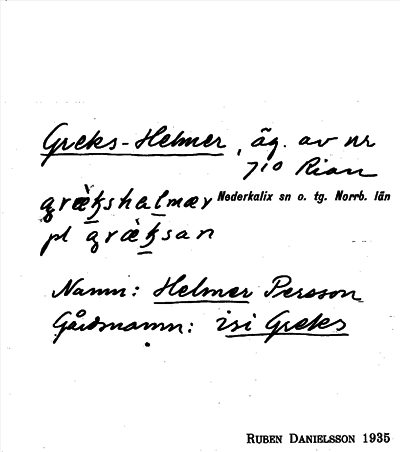 Greks-Helmer, äg. av nr
710 Rian
græ̀kshalmær Nederkalix sn o. tg. Norrb. län
pl græ̀ksan
Namn: Helmer Persson
Gårdsnamn: isi Greks
RUBEN DANIELSSON 1935